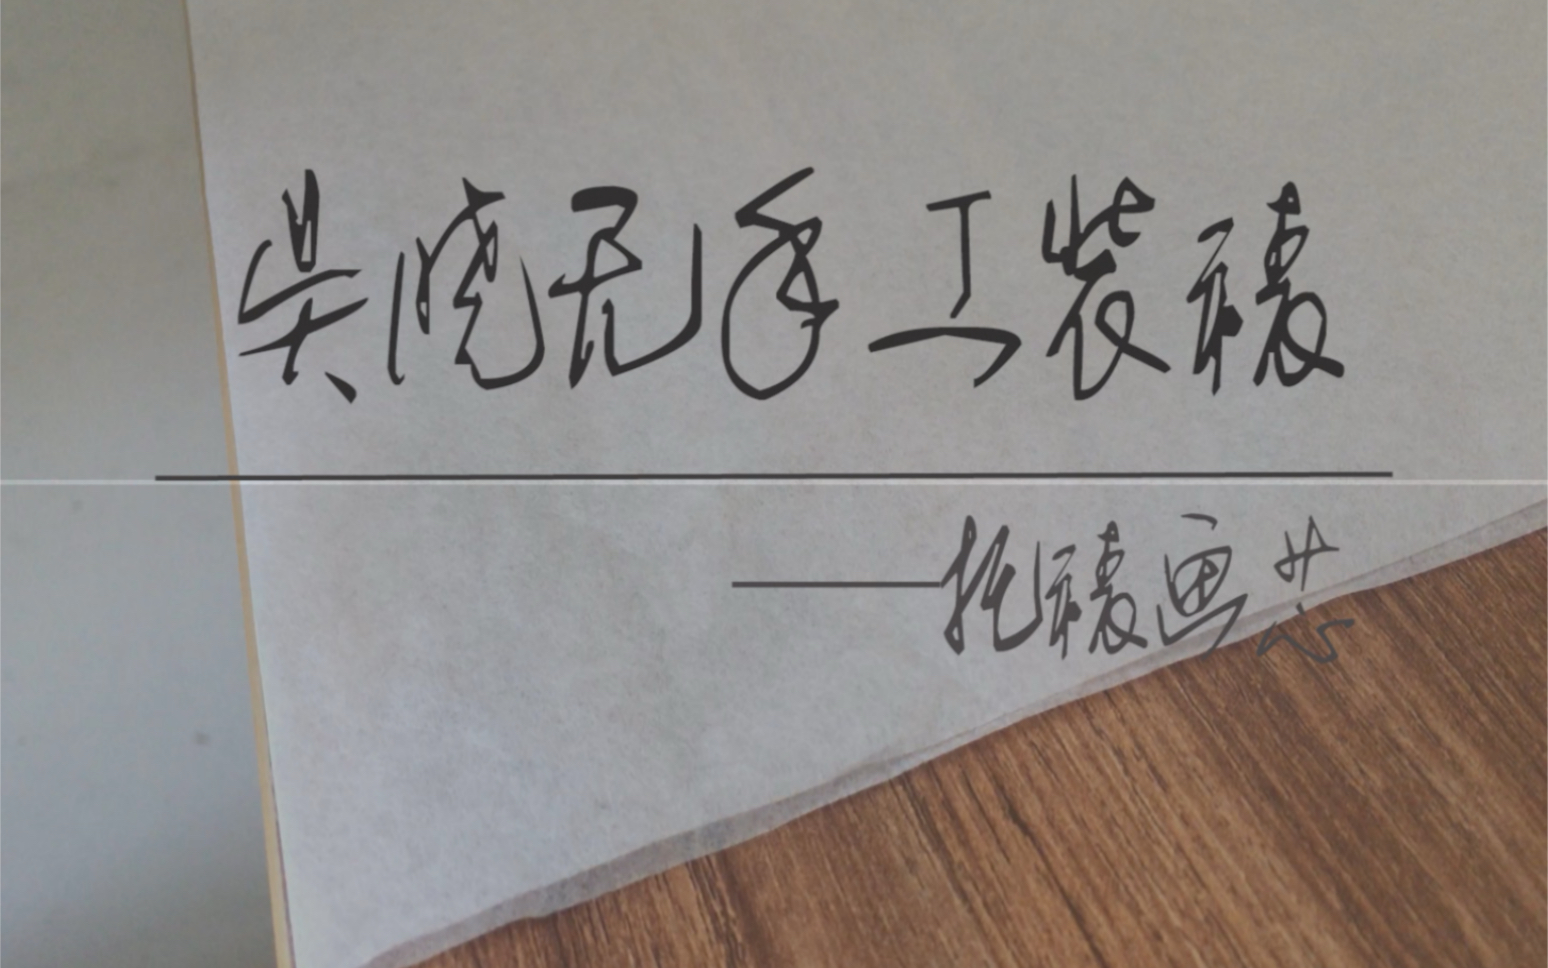 吴晓无手工装裱
——托裱画芯